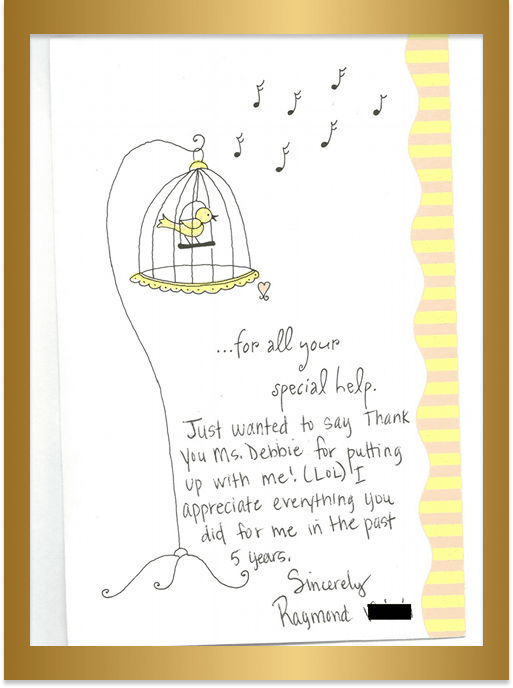 ...for all your
special help.
Just wanted to say Thank
you Ms. Debbie for putting
up with me! (LoL) I
appreciate everything you
did for me in the past
5 years.
Sincerely
Raymond